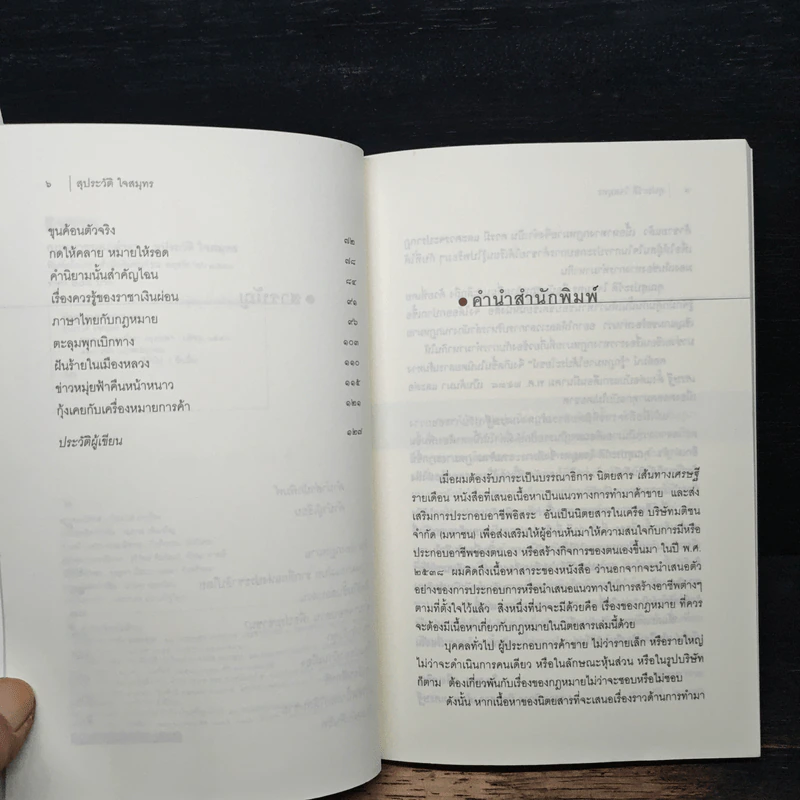 ๖ | สุประวัติ ใจสมุทร
ขุนค้อนตัวจริง ๗๒
กดให้คลาย หมายให้รอด ๗๘
คำนิยามนั้นสำคัญไฉน ๘๔
เรื่องควรรู้ของราชาเงินผ่อน ๙๑
ภาษาไทยกับกฎหมาย ๙๖
ตะลุมพุกเบิกทาง ๑๐๓
ฝันร้ายในเมืองหลวง ๑๑๐
ข่าวหมุ่ยฟ้าคืนหน้าหนาว ๑๑๕
กุ้งเคยกับเครื่องหมายการค้า ๑๒๑
ประวัติผู้เขียน ๑๒๗
คำนำสำนักพิมพ์
เมื่อผมต้องรับภาระเป็นบรรณาธิการ นิตยสาร เส้นทางเศรษฐี
รายเดือน หนังสือที่เสนอเนื้อหาเป็นแนวทางการทำมาค้าขาย และส่ง
เสริมการประกอบอาชีพอิสระ อันเป็นนิตยสารในเครือ บริษัทมติชน
จำกัด (มหาชน) เพื่อส่งเสริมให้ผู้อ่านหันมาให้ความสนใจกับการมีหรือ
ประกอบอาชีพของตนเอง หรือสร้างกิจการของตนเองขึ้นมา ในปี พ.ศ.
๒๕๓๘ ผมคิดถึงเนื้อหาสาระของหนังสือ ว่านอกจากจะนำเสนอตัว
อย่างของการประกอบการหรือนำเสนอแนวทางในการสร้างอาชีพต่างๆ
ตามที่ตั้งใจไว้แล้ว สิ่งหนึ่งที่น่าจะมีด้วยคือ เรื่องของกฎหมาย ที่ควร
จะต้องมีเนื้อหาเกี่ยวกับกฎหมายในนิตยสารเล่มนี้ด้วย
บุคคลทั่วไป ผู้ประกอบการค้าขาย ไม่ว่ารายเล็ก หรือรายใหญ่
ไม่ว่าจะดำเนินการคนเดียว หรือในลักษณะหุ้นส่วน หรือในรูปบริษัท
ก็ตาม ต้องเกี่ยวพันกับเรื่องของกฎหมายไม่ว่าจะชอบหรือไม่ชอบ
ดังนั้น หากเนื้อหาของนิตยสารที่จะเสนอเรื่องราวด้านการทำมา